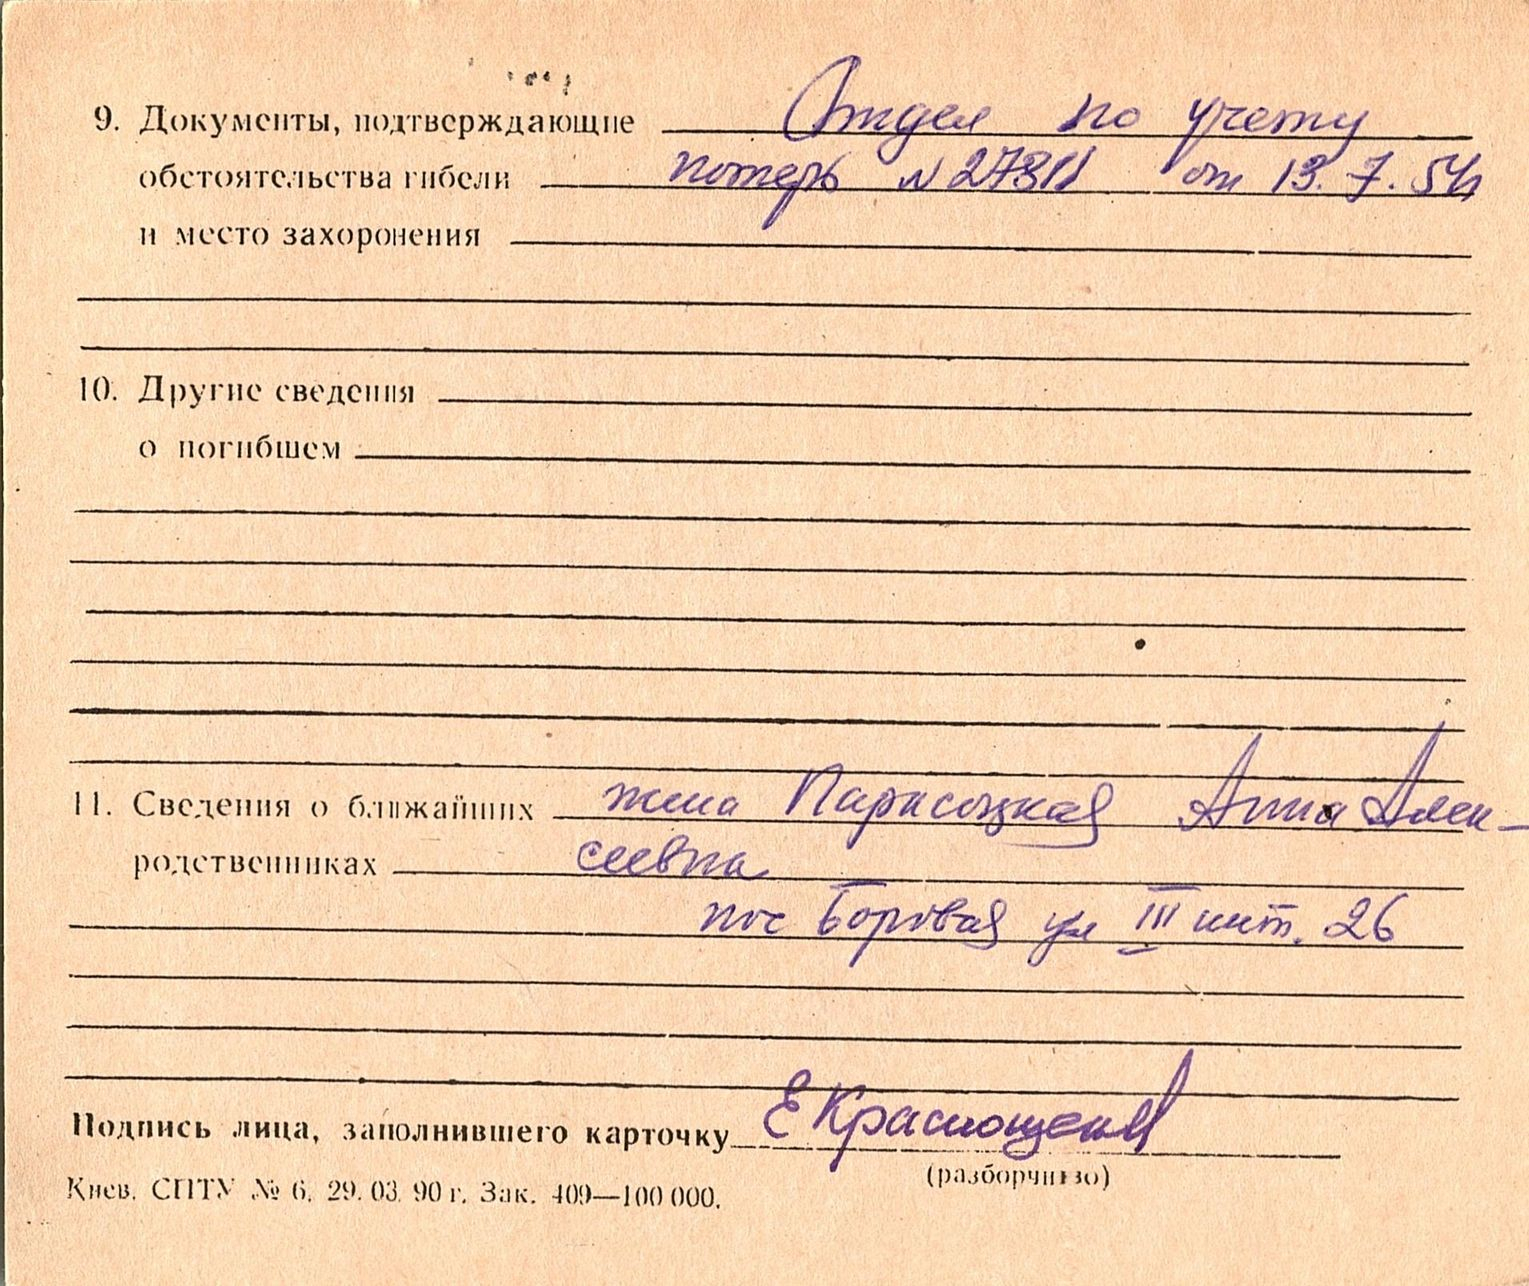 9. Документы, подтверждающие Отдел по учету
обстоятельства гибели потерь N 27311 от 13.7.54
и место захоронения
10. Другие сведения
о погибшем
11. Сведения о ближайших жена Парасоцкая Анна Алек-
родственниках сеевна
пос Боровая ул III инт. 26
Подпись лица, заполнившего карточку Е Краснощек
(разборчиво)
Киев. СПТУ № 6. 29. 03. 90 г. Зак. 409—100 000.